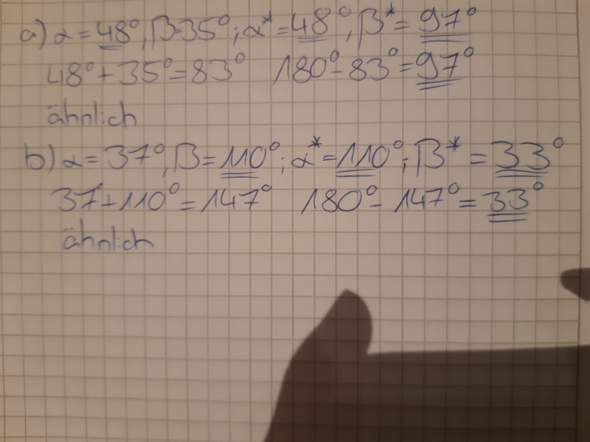 a) α = 48°, β = 35°; α* = 48°, β* = 97°
48° + 35° = 83° 180° - 83° = 97°
ähnlich
b) α = 37°, β = 110°; α* = 110°; β* = 33°
37 + 110° = 147° 180° - 147° = 33°
ähnlich